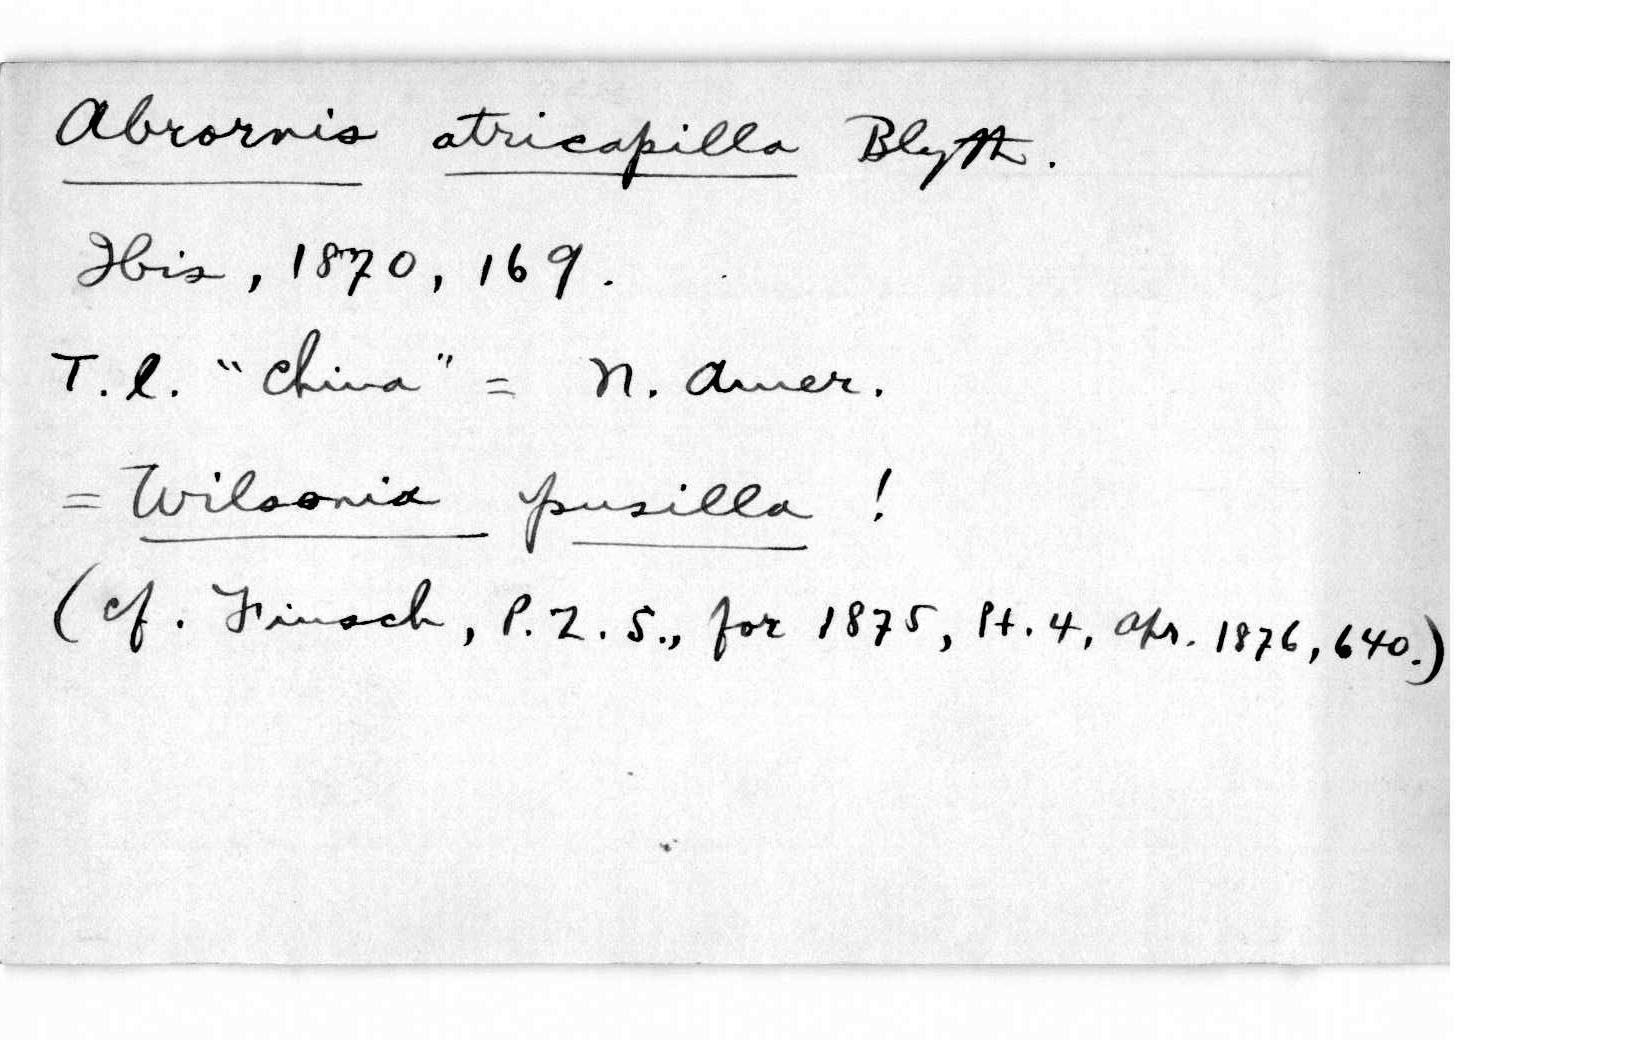 Abrornis atricapilla Blyth.
Ibis, 1870, 169.
T.l. "China" = N. Amer.
= Wilsonia pusilla !
(cf. Finsch, P.Z.S., for 1875, Pt. 4, Apr. 1876, 640.)